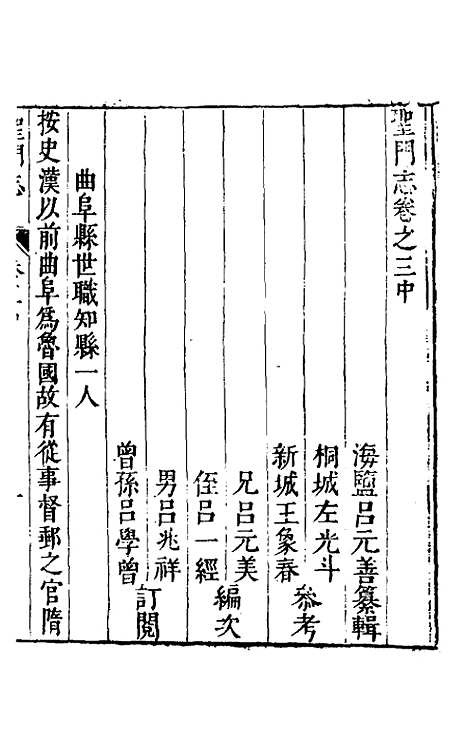 聖門志卷之三中
海鹽呂元善纂輯
桐城左光斗
新城王象春
叅考
兄呂元美
侄呂一經
編次
男呂兆祥
曾孫呂學曾
訂閱
曲阜縣世職知縣一人
按史漢以前曲阜爲魯國故有從事督郵之官隋
聖門志